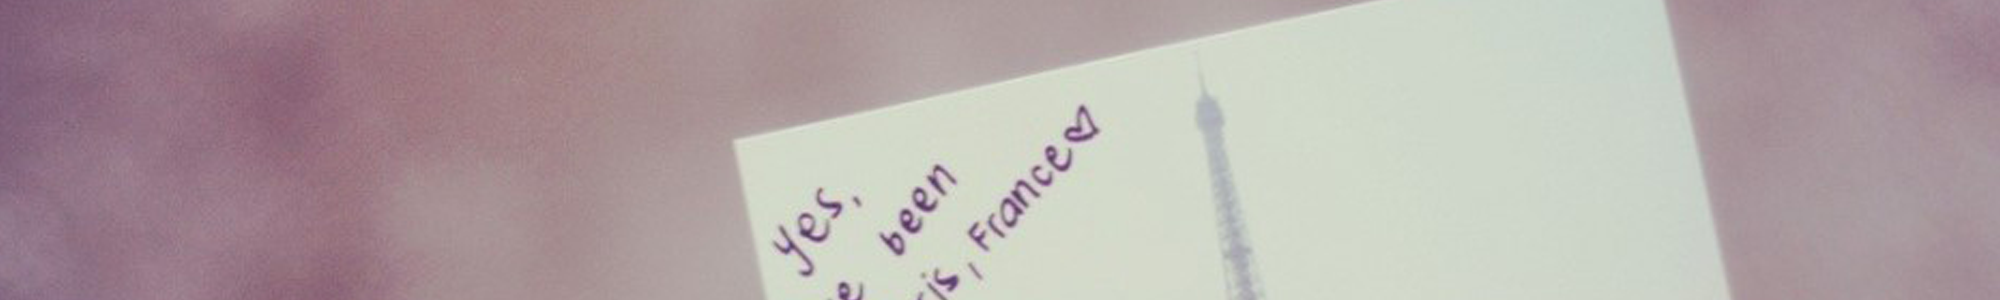 yes,
been
, France♡